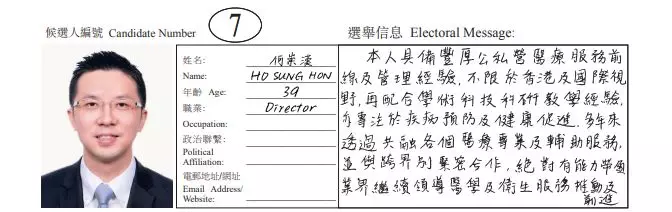 候選人編號 Candidate Number 7
選舉信息 Electoral Message:
姓名:
Name: 何崇漢
HO SUNG HON
年齡 Age: 39
職業: Director
Occupation:
政治聯繫:
Political
Affiliation:
電郵地址/網址
Email Address/
Website:
本人具備豐厚公私營醫療服務前
線及管理經驗,不限於香港及國際視
野,再配合學術科技科研教學經驗,
專注於疾病預防及健康促進。多年來
透過共融各個醫療專業及輔助服務,
並與跨界別緊密合作,絕對有能力帶領
業界繼續領導醫學及衛生服務推動及
前進